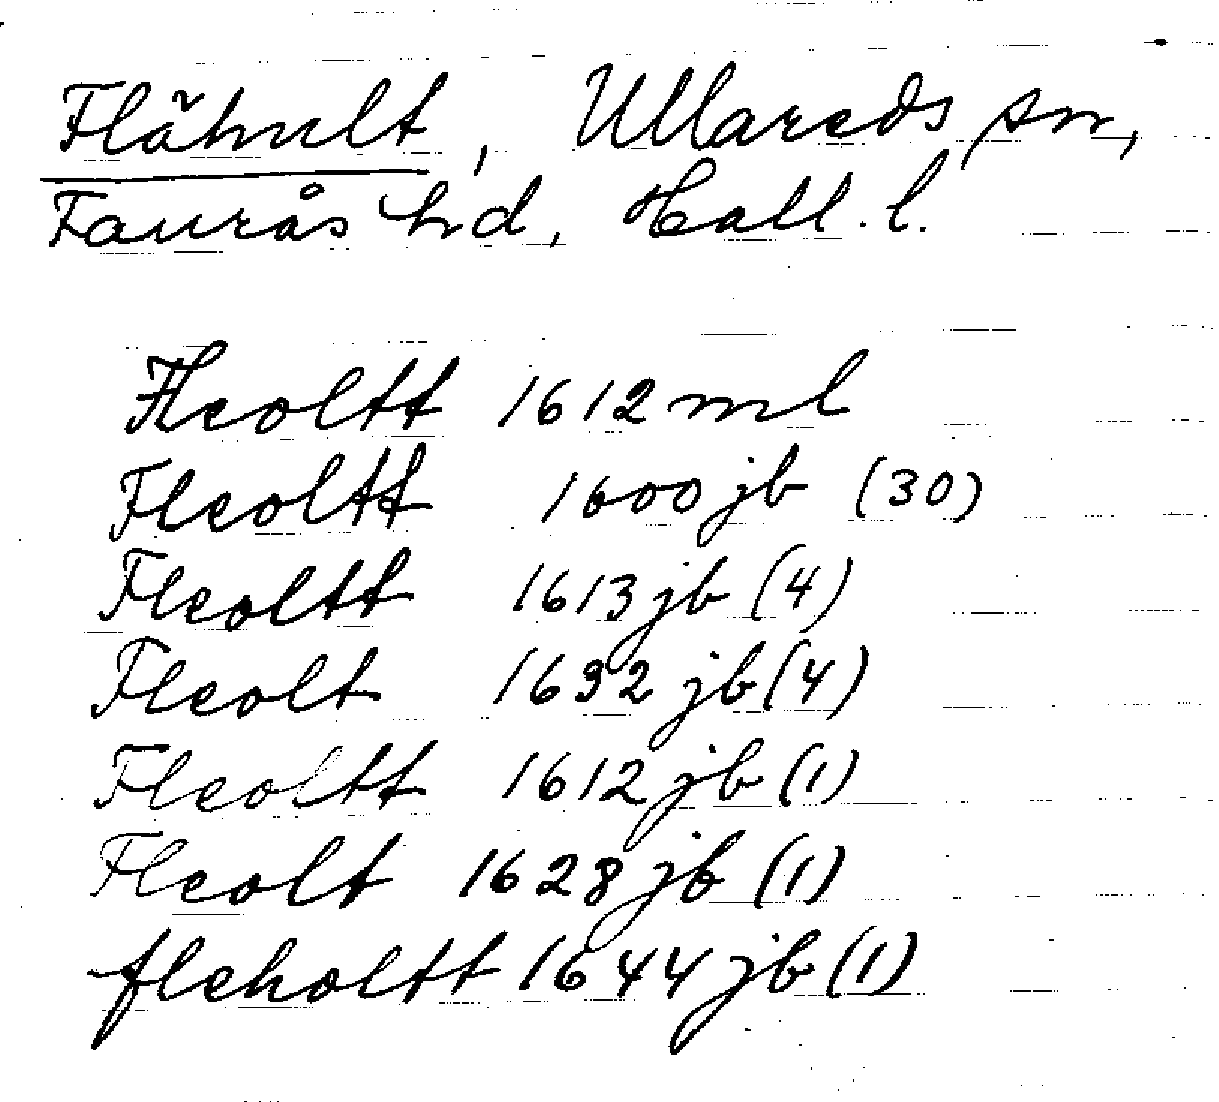 Flähult, Ullareds sn,
Faurås hd, Hall. l.
Fleoltt 1612 ml
Fleoltt 1600 jb (30)
Fleoltt 1613 jb (4)
Fleolt 1632 jb (4)
Fleoltt 1612 jb (1)
Fleolt 1628 jb (1)
fleholtt 1644 jb (1)